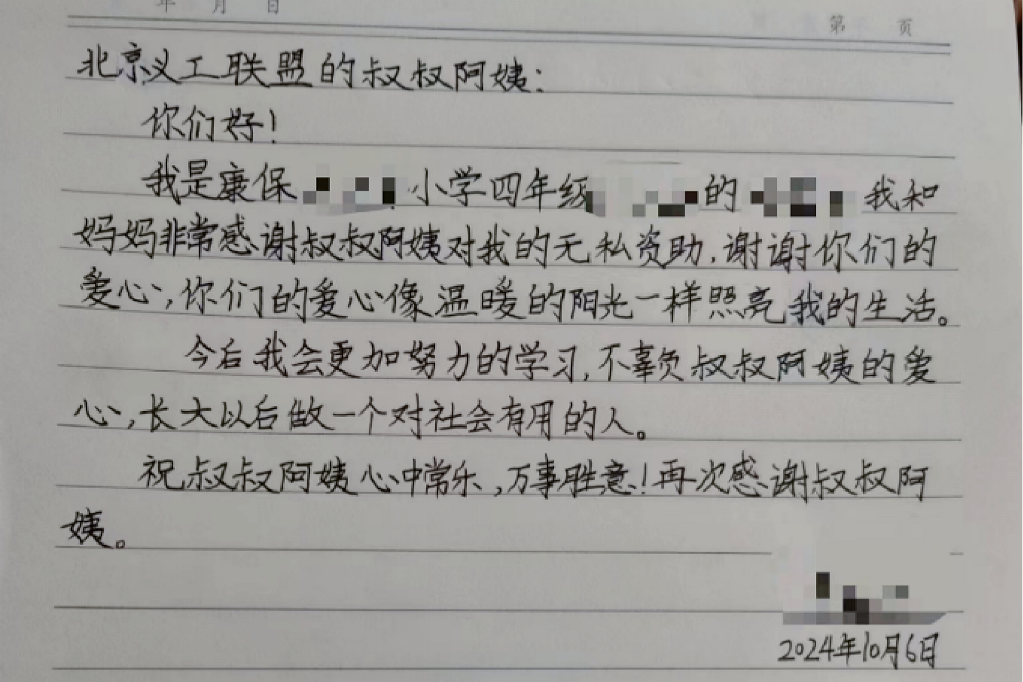 年 月 日
第 页
北京义工联盟的叔叔阿姨:
你们好!
我是康保 小学四年级 的 我和
妈妈非常感谢叔叔阿姨对我的无私资助,谢谢你们的
爱心,你们的爱心像温暖的阳光一样照亮我的生活。
今后我会更加努力的学习,不辜负叔叔阿姨的爱
心,长大以后做一个对社会有用的人。
祝叔叔阿姨心中常乐,万事胜意!再次感谢叔叔阿
姨。
2024年10月6日